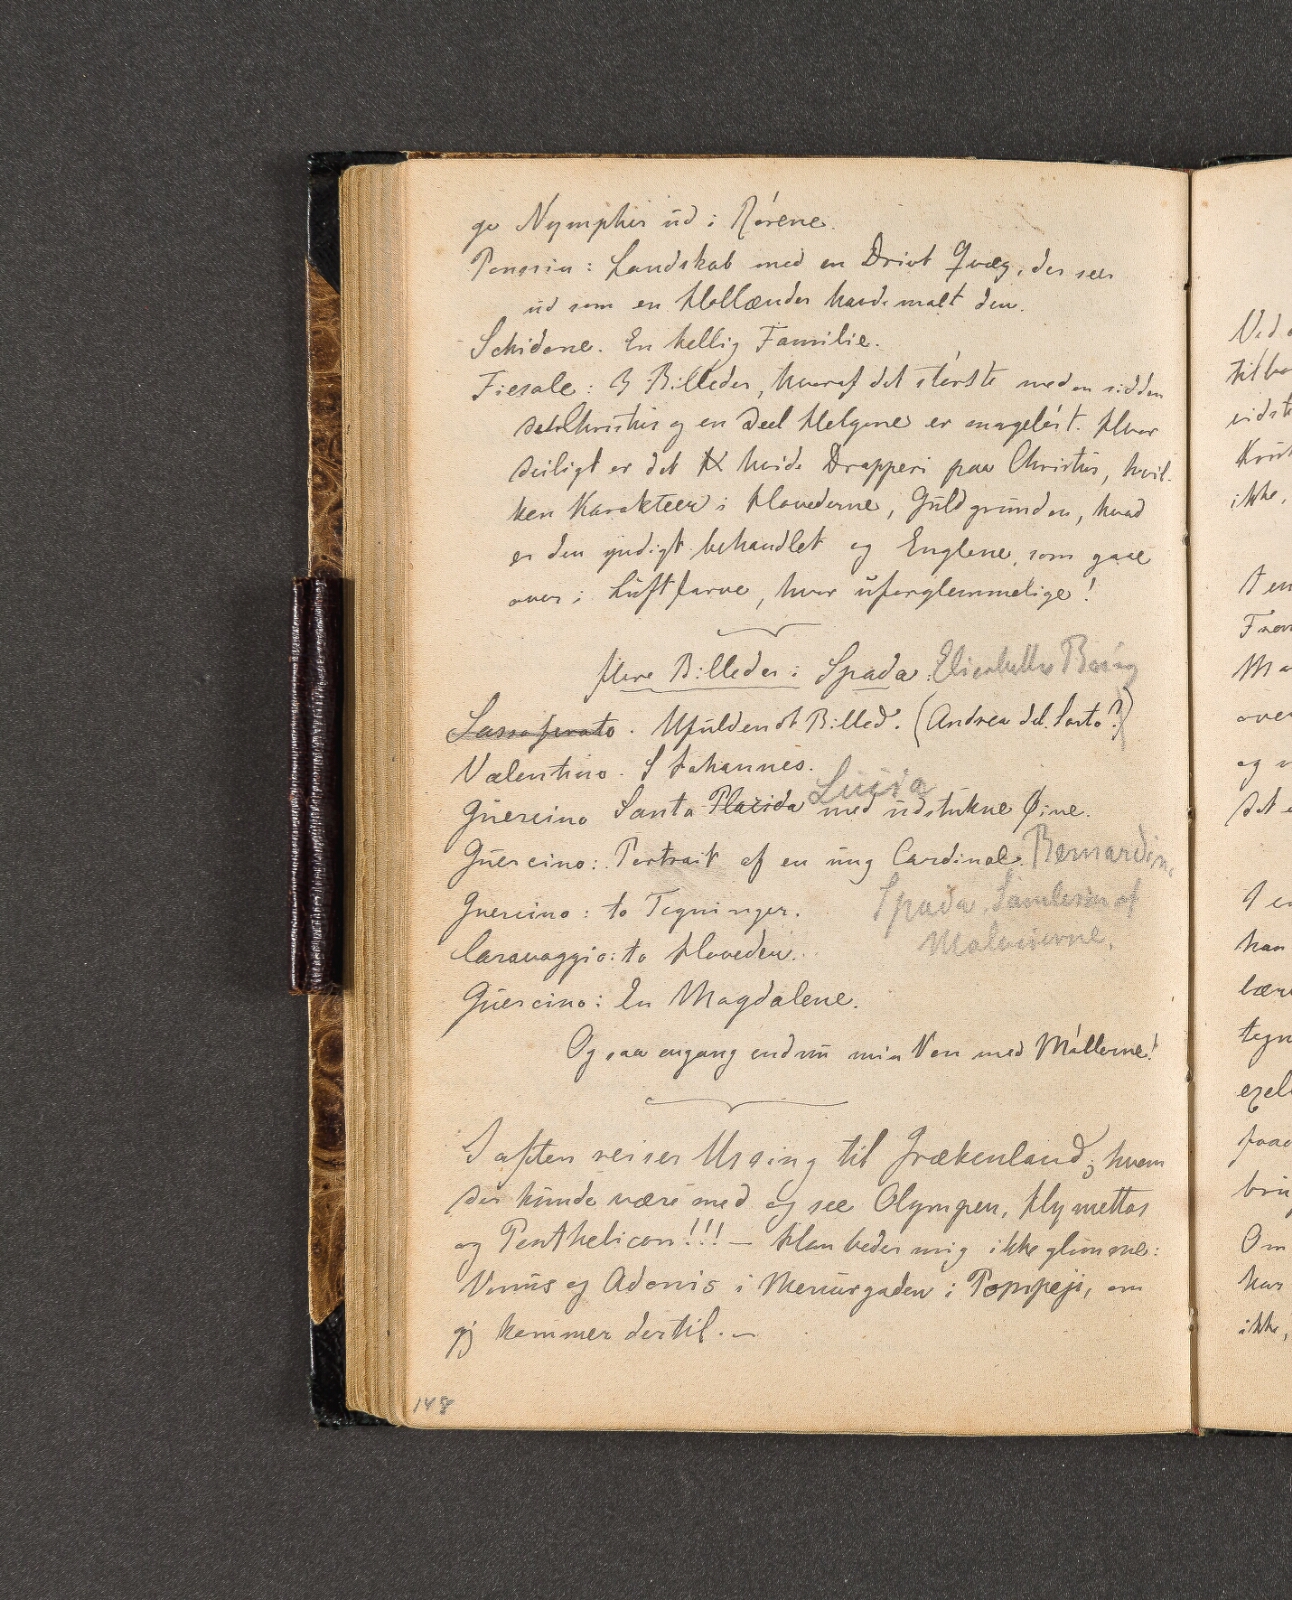 ge Nympher ud i Rørene.
Poussin: Landskab med en Drivt Qvæg, der seer
ud som en Hollænder havde malt den.
Schidone. En hellig Familie.
Fiesole: 3 Billeder, hvoraf det største med en sidden
de Christus og en Deel Helgene er mageløst. Hvor
deiligt er det hvide Drapperi paa Christus, hvil-
ken Karakteer i Hovederne, Guldgrunden, hvad
er den yndigt behandlet og Englene, som gaae
over i Luftfarve, hvor uforglemmelige!
flere Billeder i Spada:
Sassoferato. Ufuldendt Billed. (Andrea del Sarto?)
Valentino. S Johannes.
Lucia
Guercino Santa Placida med udstukne Øine.
Guercino: Portrait af en ung Cardinal. Bernardin,
Guercino: to Tegninger. Spada, af
Caravaggio: to Hoveder.
Guercino: En Magdalene.
Og saa engang endnu min Ven med Møllerne!
I aften reiser Ussing til Grækenland; hvem
der kunde være med og see Olympen, Hymettos
og Penthelicon!!! — Han beder mig ikke glemme:
Venus og Adonis i Mercurgaden i Pompeji, om
jeg kommer dertil. —
148